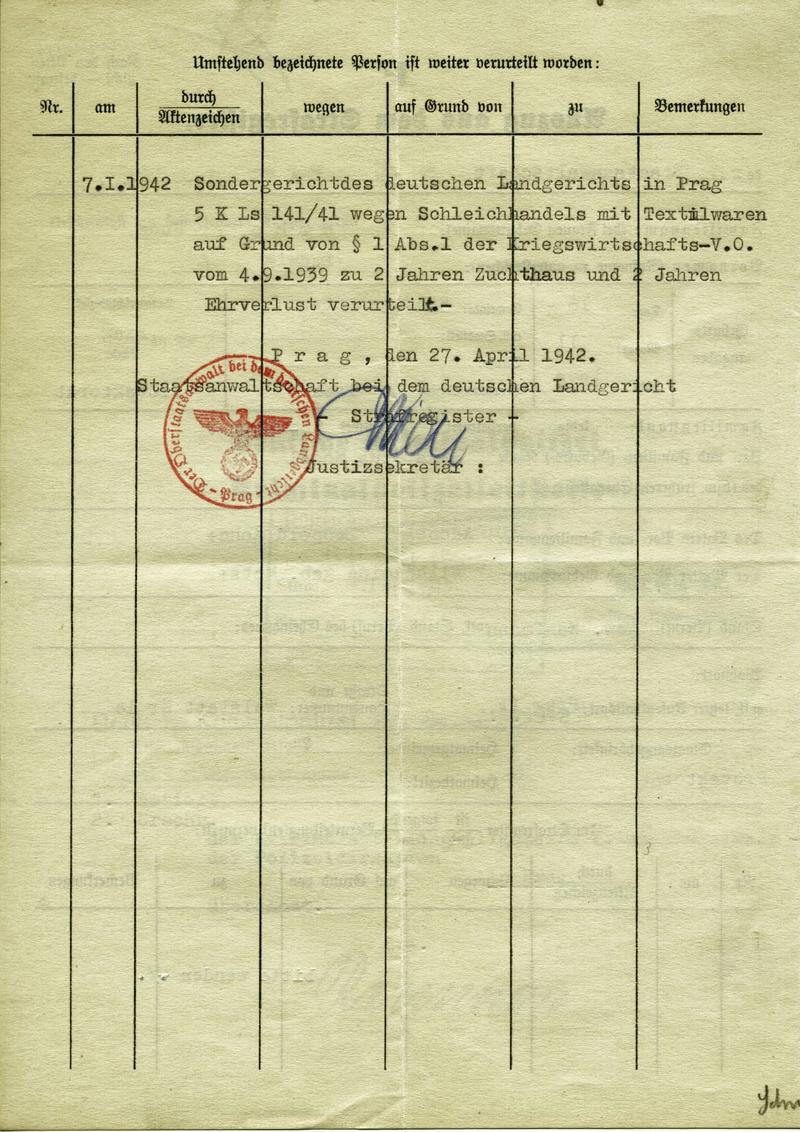 Umstehend bezeichnete Person ist weiter verurteilt worden:
Nr. am durch Aktenzeichen wegen auf Grund von zu Bemerkungen
7.I.1942 Sondergerichtdes deutschen Landgerichts in Prag
5 K Ls 141/41 wegen Schleichhandels mit Textilwaren
auf Grund von § 1 Abs.1 der Kriegswirtschafts-V.O.
vom 4.9.1939 zu 2 Jahren Zuchthaus und 2 Jahren
Ehrverlust verurteilt.-
P r a g , den 27. April 1942.
Staatsanwaltschaft bei dem deutschen Landgericht
- Strafregister -
Justizsekretär :
Der Oberstaatsanwalt bei dem deutschen Landgericht - Prag -